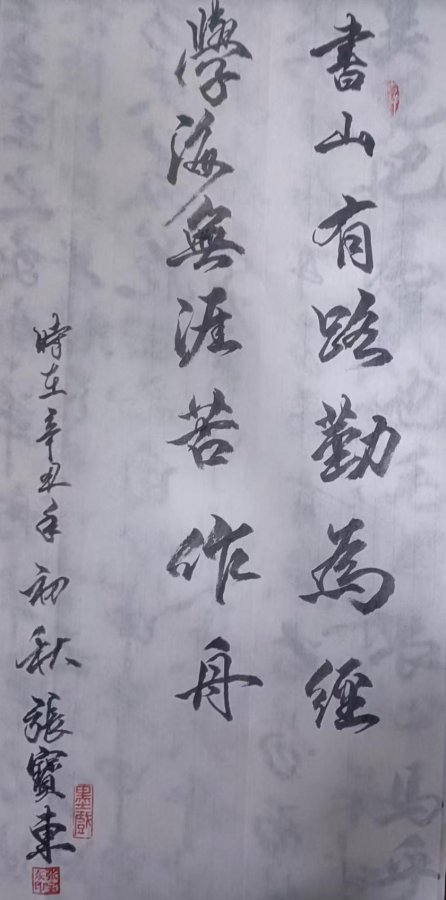 書山有路勤為經
學海無涯苦作舟
時在辛丑年初秋張寶東
墨戲